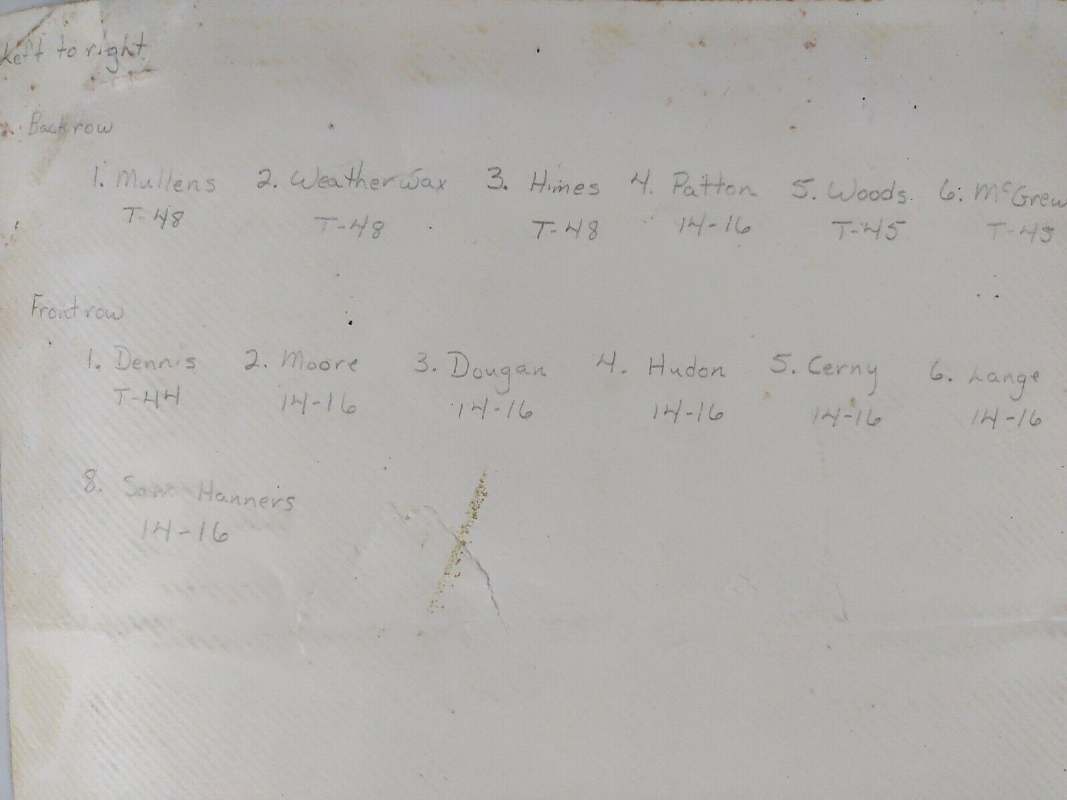 Left to right
Back row
1. Mullens 2. Weatherwax 3. Himes 4. Patton 5. Woods. 6. McGrew
T-48 T-48 T-48 14-16 T-45 T-45
Front row
1. Dennis 2. Moore 3. Dougan 4. Hudon 5. Cerny 6. Lange
T-44 14-16 14-16 14-16 14-16 14-16
8. Hanners
14-16